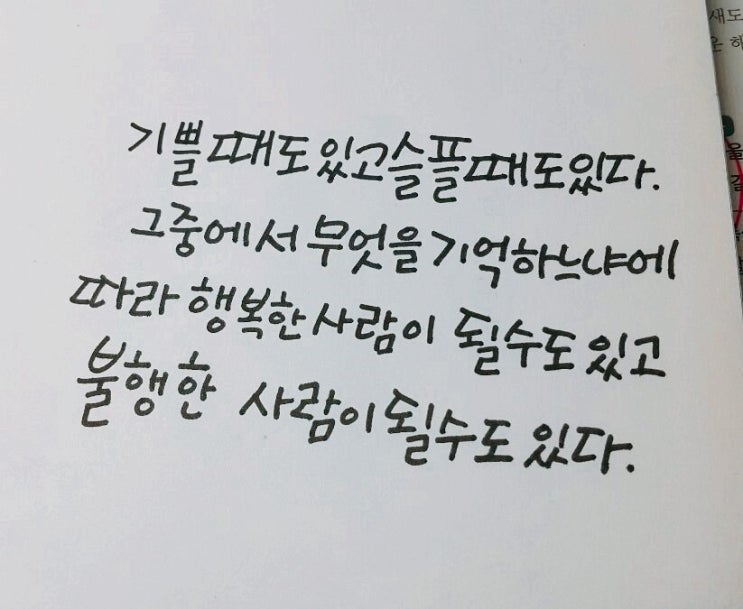 기쁠때도있고슬플때도있다.
그중에서 무엇을 기억하느냐에
따라 행복한 사람이 될수도 있고
불행한 사람이 될수도 있다.
새도